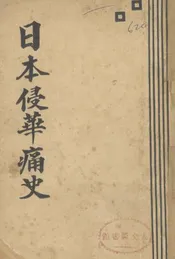 日本侵華痛史